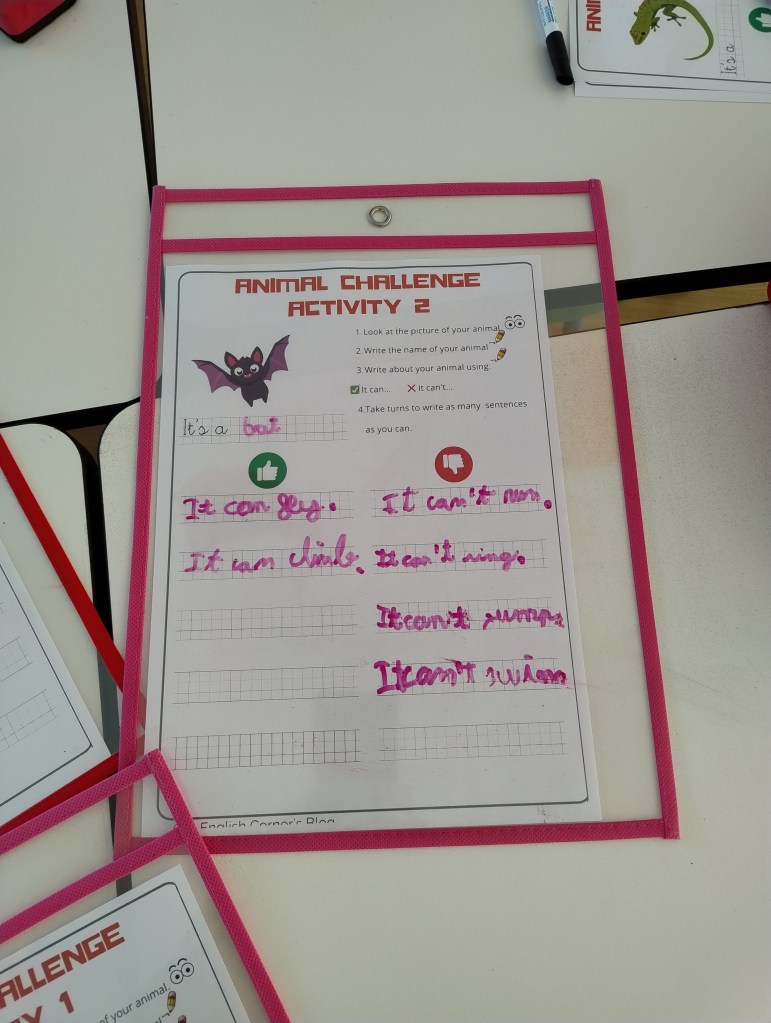 ANIMAL CHALLENGE
ACTIVITY 2
1. Look at the picture of your animal
2. Write the name of your animal
3. Write about your animal using:
It can... It can't...
4. Take turns to write as many sentences
as you can.
It's a bat
It can fly.
It can climb.
It can't run.
It can't sing.
It can't jump
It can't swim
English Corner's Blog
It's a
ALLENGE
Y 1
of your animal.